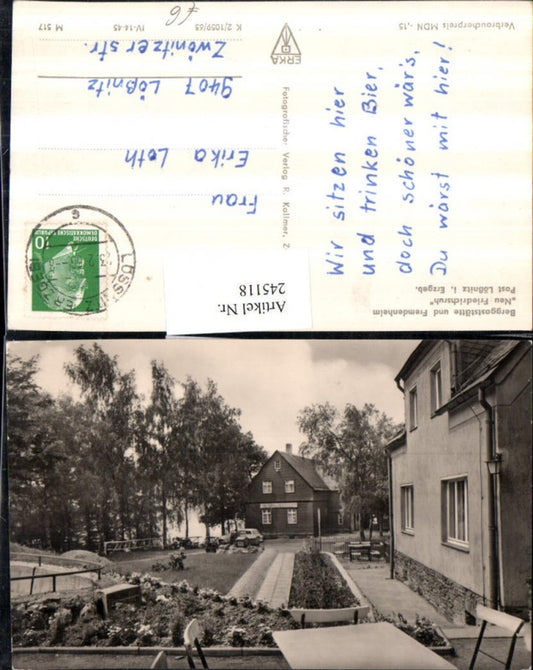 Verbraucherpreis MDN -,15
K 2/1059/65
IV-14-45
M 517
€6
ERKA
Fotografischer Verlag R. Kallmer, Z
Wir sitzen hier
und trinken Bier,
doch schöner wär's,
Du wärst mit hier!
Frau
Erika Loth
9407 Lößnitz
Zwönitzer str.
10
DEUTSCHE
DEMOKRATISCHE REPUBLIK
LÖSSNITZ
Berggaststätte und Fremdenheim
„Neu Friedrichsruh"
Post Lößnitz i. Erzgeb.
Artikel Nr.
245118